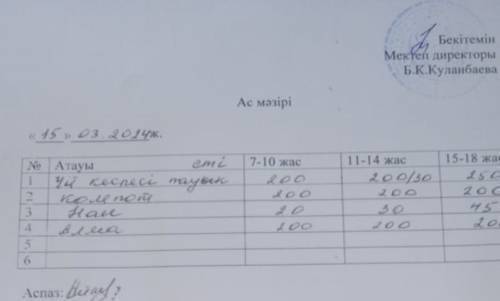 Бекітемін
Мектеп директоры
Б.К.Куланбаева
Ас мәзірі
«15» 03. 2024ж.
№ Атауы 7-10 жас 11-14 жас 15-18 жас
1 Үй кеспесі тауық еті 200 200/30 250
2 компот 200 200 200
3 Нан 20 30 45
4 Алма 200 200 20
5
6
Аспаз: